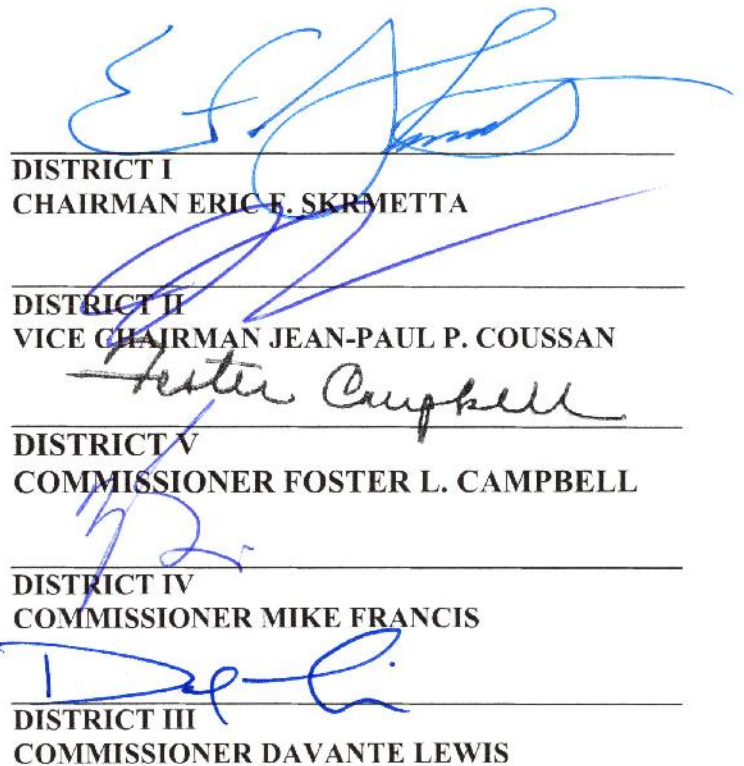 DISTRICT I
CHAIRMAN ERIC F. SKRMETTA
DISTRICT II
VICE CHAIRMAN JEAN-PAUL P. COUSSAN
Foster Campbell
DISTRICT V
COMMISSIONER FOSTER L. CAMPBELL
DISTRICT IV
COMMISSIONER MIKE FRANCIS
DISTRICT III
COMMISSIONER DAVANTE LEWIS